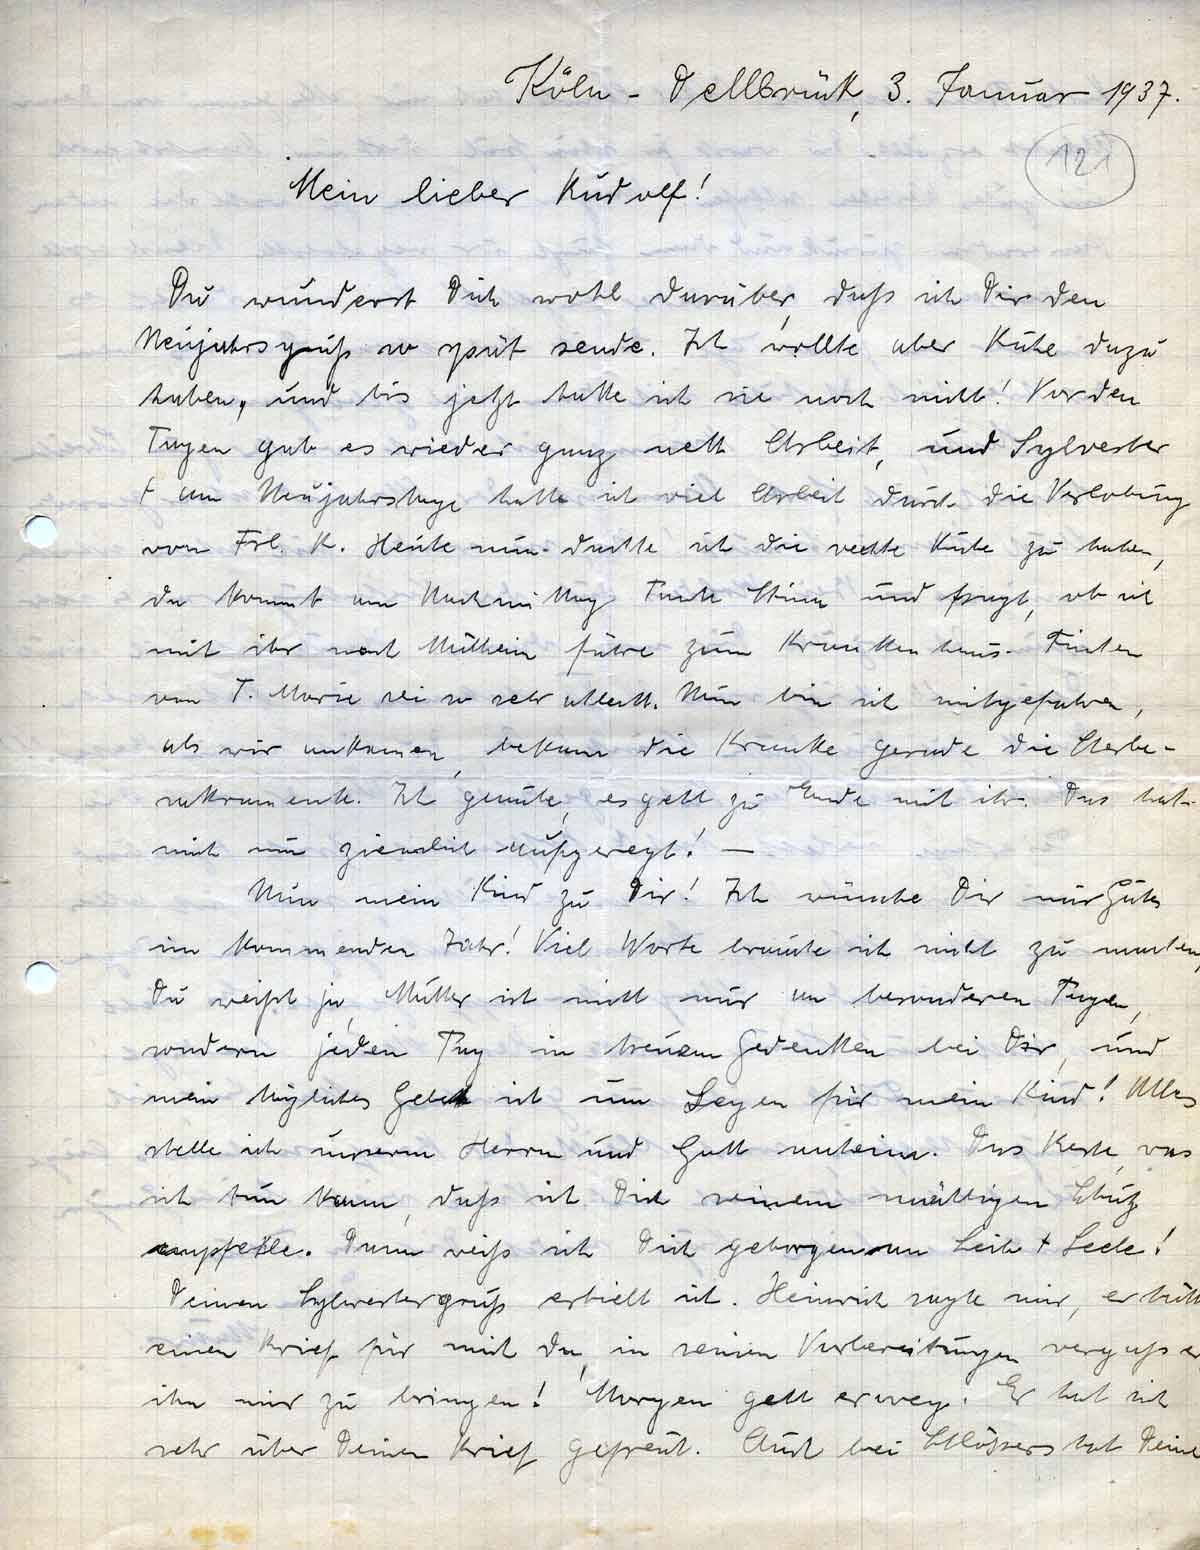 Köln - Dellbrück, 3. Januar 1937.
121
Mein lieber Rudolf!
Du wunderst Dich wohl darüber, daß ich Dir den
Neujahrsgruß so spät sende. Ich wollte aber Ruhe dazu
haben, und bis jetzt hatte ich sie noch nicht! Vor den
Tagen gab es wieder ganz nett Arbeit, und Sylvester
+ am Neujahrstage hatte ich viel Arbeit durch die Verlobung
von Frl. K. Heute nun dachte ich die rechte Ruhe zu haben,
da kommt am Nachmittag Tante Stina und fragt, ob ich
mit ihr nach Mülheim führe zum Krankenhaus.
von T. Marie sei so sehr schlecht. Nun bin ich mitgefahren,
als wir ankamen, bekam die Kranke gerade die Sterbe-
sakramente. Ich glaube, es geht zu Ende mit ihr. Das hat
mich nun ziemlich aufgeregt! —
Nun mein Kind zu Dir! Ich wünsche Dir nur Gutes
im kommenden Jahr! Viel Worte brauche ich nicht zu machen,
Du weißt ja, Mutter ist nicht nur an besonderen Tagen,
sondern jeden Tag in treuem Gedenken bei Dir, und
mein tägliches Gebet ist um Segen für mein Kind! Alles
stelle ich unserm Herrn und Gott anheim. Das Beste, was
ich tun kann, daß ich Dich seinem mächtigen Schutz
empfehle. Dann weiß ich Dich geborgen an Leib + Seele!
Deinen Sylvestergruß erhielt ich. Heinrich sagte mir, er hätte
einen Brief für mich da, in seinen Vorbereitungen vergaß er
ihn mir zu bringen! Morgen geht er weg. Er hat sich
sehr über Deinen Brief gefreut. Auch bei Schlössers hat Deine